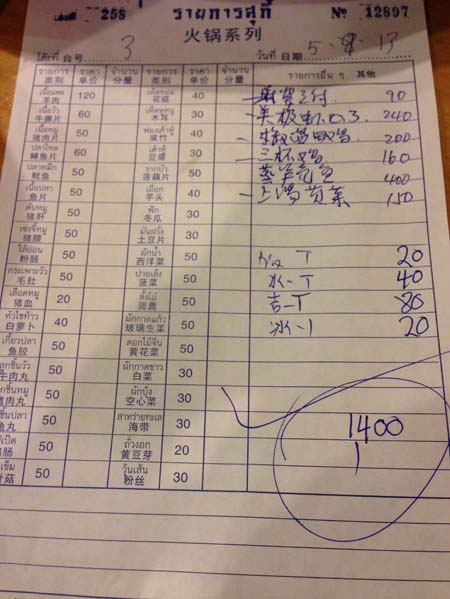 เล่มที่ 258 รายการสุกี้ № 12897
火锅系列
โต๊ะที่ 台号 3 วันที่ 日期 5
รายการ ราคา จำนวน รายการ ราคา จำนวน รายการอื่น ๆ 其他
类别 单价 分量 类别 单价 分量
เนื้อแพะ 120 เห็ดหอม 40 90
羊肉 花菇
เนื้อวัว 60 เห็ดหูหนู 30 240
牛腩片 木耳
เนื้อหมู 50 ฟองเต้าหู้ 40 200
猪肉片 腐竹
ปลาไหล 60 เต้าหู้ 30 三杯鸡 160
鳝鱼片 豆腐
ปลาหมึก 50 รากบัว 50 400
鱿鱼 莲藕片
เนื้อปลา 50 เผือก 40 上汤 150
鱼片 芋头
ตับหมู 50 ฟัก 30
猪肝 冬瓜
เซ่งจี๊หมู 50 มันฝรั่ง 30
猪腰 土豆片
ไส้อ่อน 50 ผักน้ำ 50 20
粉肠 西洋菜
กระเพาะวัว 50 ปวยเล้ง 50 水 40
毛肚 菠菜
เลือดหมู 20 ตั้งโอ๋ 50 吉 80
猪血 茼蒿
หัวไชเท้า 40 ผักกาดแก้ว 50 冰 20
白萝卜 玻璃生菜
เกี๊ยวปลา 50 ดอกไม้จีน 50
鱼胶 黄花菜
ลูกชิ้นวัว 50 ผักกาดขาว 30
牛肉丸 白菜
ลูกชิ้นหมู 50 ผักบุ้ง 30
猪肉丸 空心菜
ชิ้นปลา 50 สาหร่ายทะเล 30 1400
鱼丸 海带
เป็ด 50 ถั่วงอก 20
肠 黄豆芽
เข็ม 50 วุ้นเส้น 30
针菇 粉丝